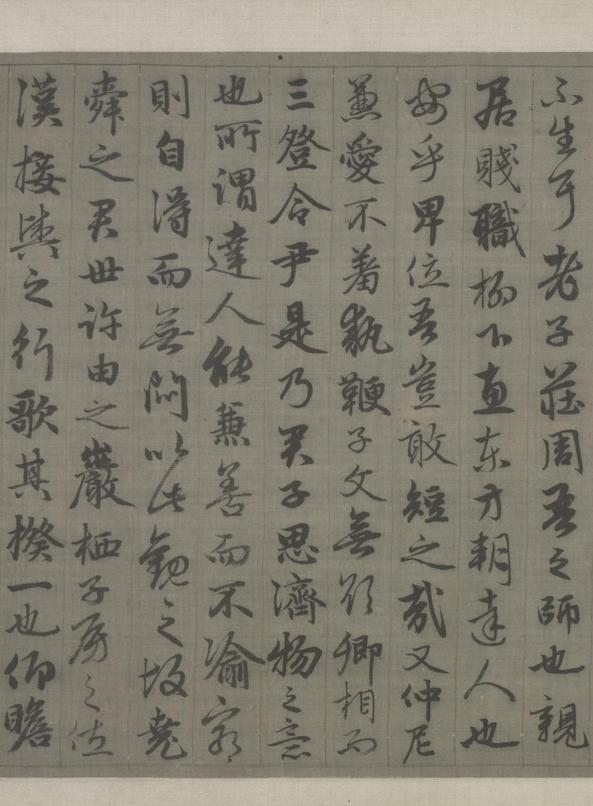 不生耳老子莊周吾之師也親
居賤職柳下惠東方朔達人也
安乎卑位吾豈敢短之哉又仲尼
兼愛不羞執鞭子文無欲卿相而
三登令尹是乃君子思濟物之意
也所謂達人能兼善而不渝窮
則自得而無悶以此觀之故堯
舜之君世許由之巖栖子房之佐
漢接輿之行歌其揆一也仰瞻